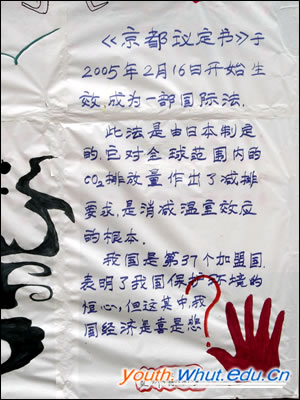 《京都议定书》于
2005年2月16日开始生
效,成为一部国际法.
此法是由日本制定
的,它对全球范围内的
CO₂排放量作出了减排
要求,是消减温室效应
的根本.
我国是第37个加盟国.
表明了我国保护环境的
恒心,但这其中,我
国经济是喜是悲
?
youth.Whut.edu.cn